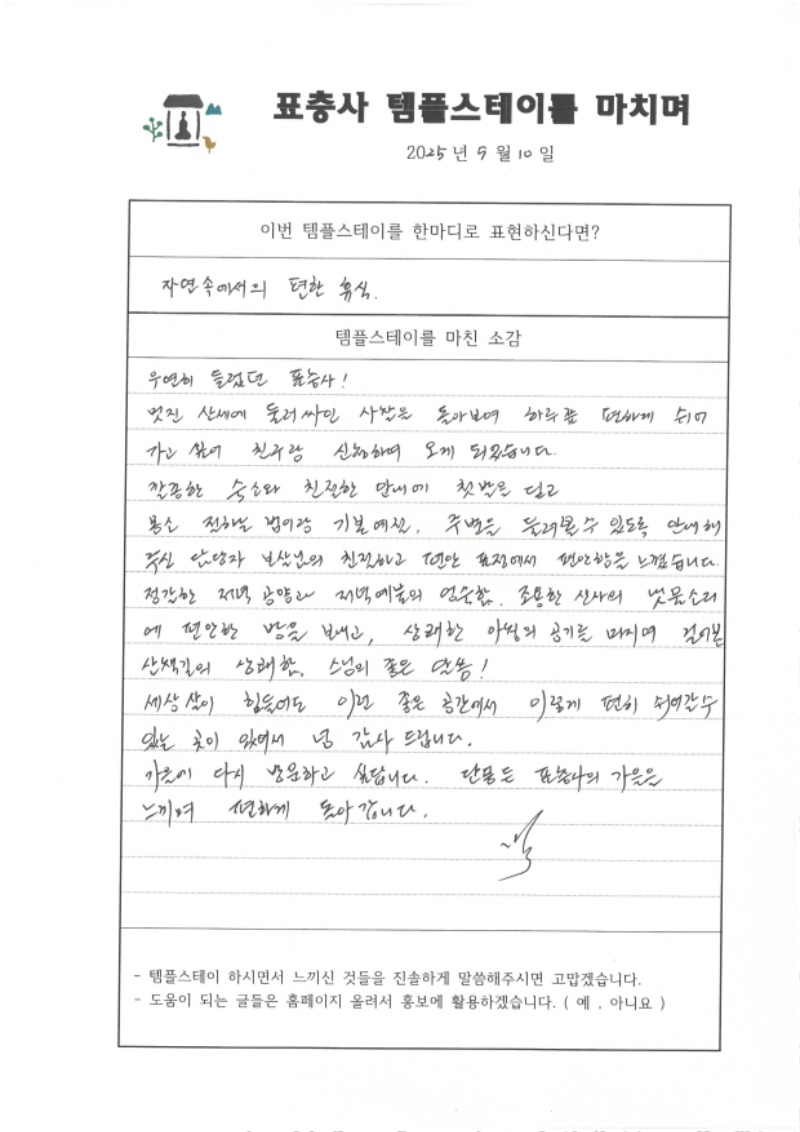 표충사 템플스테이를 마치며
2025년 5월 10일
이번 템플스테이를 한마디로 표현하신다면?
자연속에서의 편한 휴식.
템플스테이를 마친 소감
우연히 들렀던 표충사!
멋진 산세에 둘러싸인 사찰을 돌아보며 하루쯤 편하게 쉬어
가고 싶어 친구랑 신청하여 오게 되었습니다.
깔끔한 숙소와 친절한 안내에 첫발을 딛고
전하는 법이랑 기본예절, 주변을 둘러볼수 있도록 안내해
주신 담당자 보살님의 친절하고 편안 표정에서 편안함을 느꼈습니다.
정갈한 저녁 공양과 저녁예불의 엄숙함, 조용한 산사의 빗물소리
에 편안한 밤을 보내고, 상쾌한 아침의 공기를 마시며 걸어본
산책길의 상쾌함, 스님의 좋은 말씀!
세상살이 힘들어도 이런 좋은 공간에서 이렇게 편히 쉬어갈수
있는 곳이 있어서 넘 감사 드립니다.
가을에 다시 방문하고 싶답니다. 단풍든 표충사의 가을을
느끼며 편하게 돌아 갑니다.
- 템플스테이 하시면서 느끼신 것들을 진솔하게 말씀해주시면 고맙겠습니다.
- 도움이 되는 글들은 홈페이지 올려서 홍보에 활용하겠습니다. ( 예 , 아니요 )